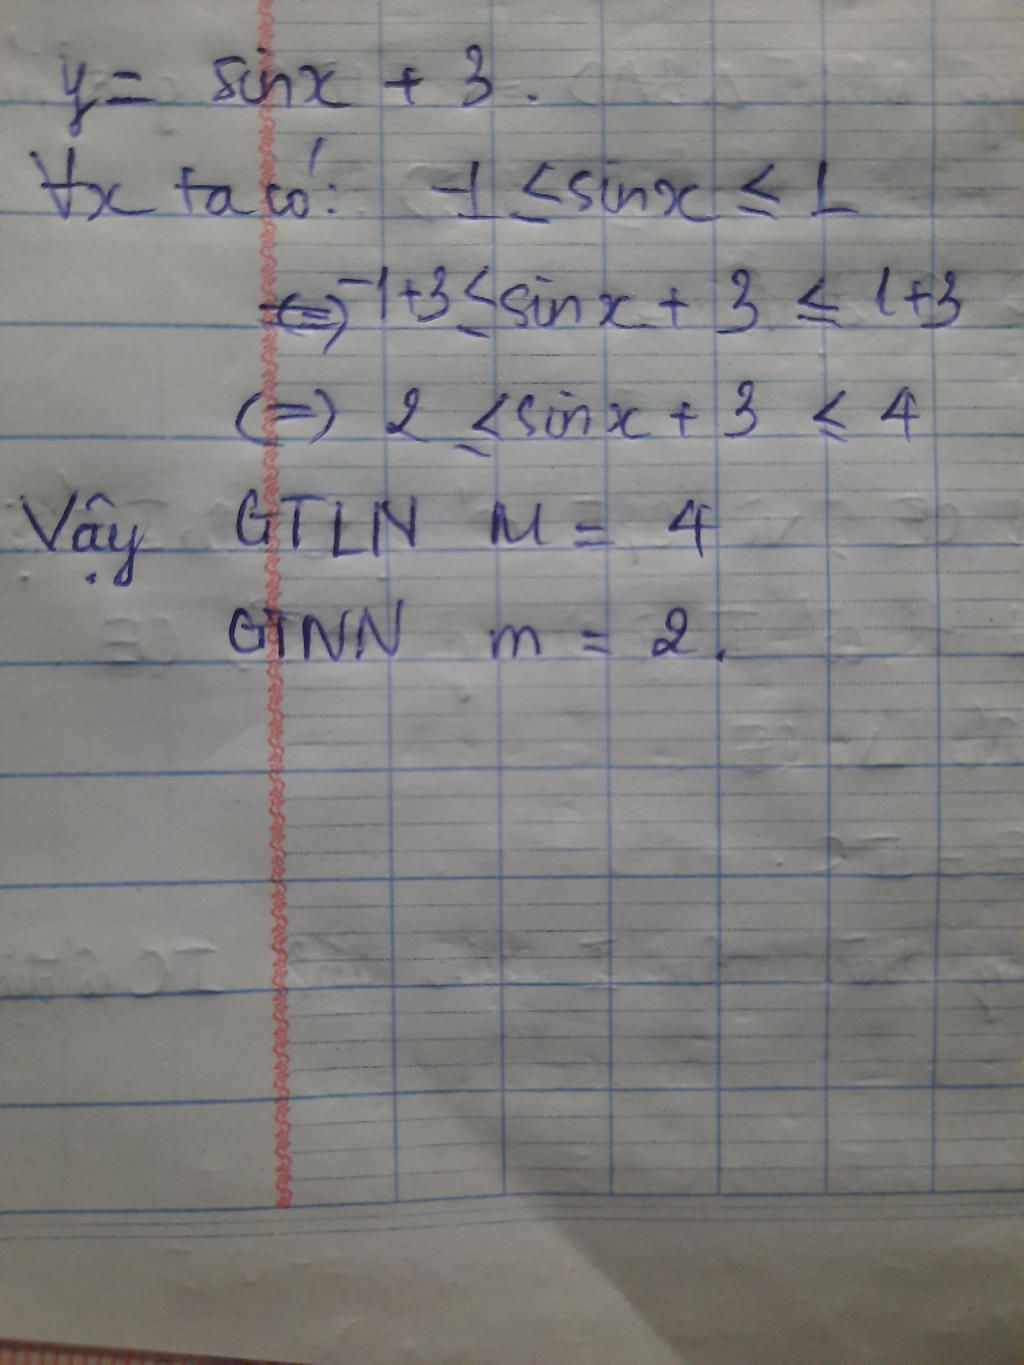 y = sinx + 3.
∀x ta có: -1 ≤ sinx ≤ 1
(=) -1+3 ≤ sinx + 3 ≤ 1+3
(=) 2 ≤ sinx + 3 ≤ 4
Vậy GTLN M = 4
GTNN m = 2.